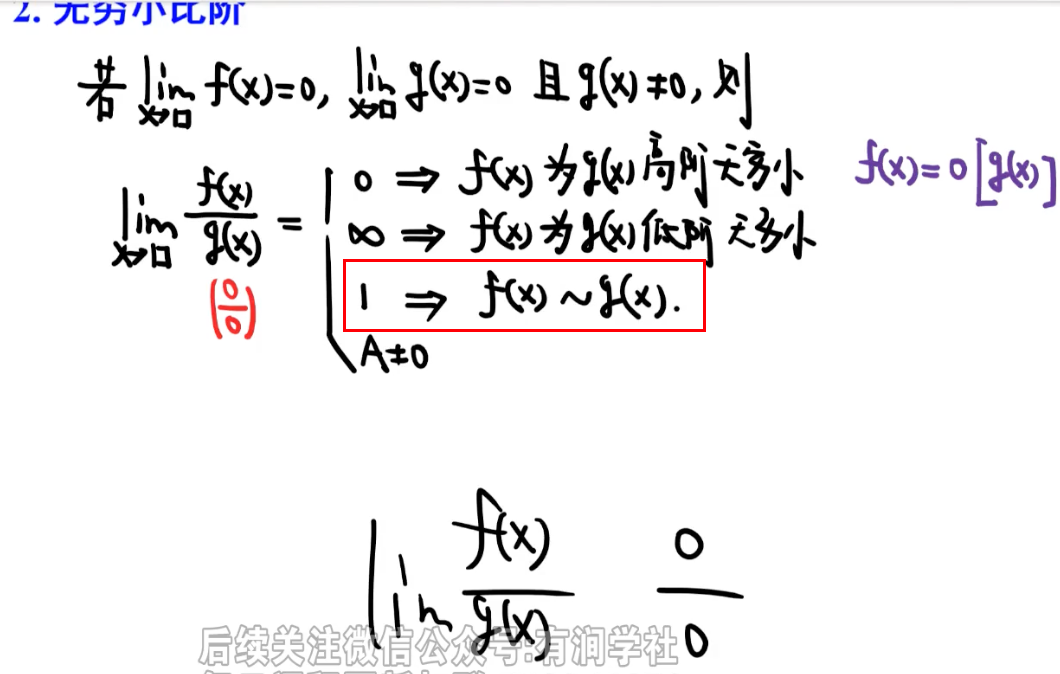 2. 无穷小比阶
若 lim x→□ f(x)=0, lim x→□ g(x)=0 且 g(x)≠0, 则
lim x→□ f(x)/g(x) =
(0/0)
0 ⇒ f(x) 为 g(x) 高阶无穷小 f(x)=0[g(x)]
∞ ⇒ f(x) 为 g(x) 低阶无穷小
1 ⇒ f(x) ~ g(x).
A≠0
lim f(x)/g(x) 0/0
后续关注微信公众号:有润学社